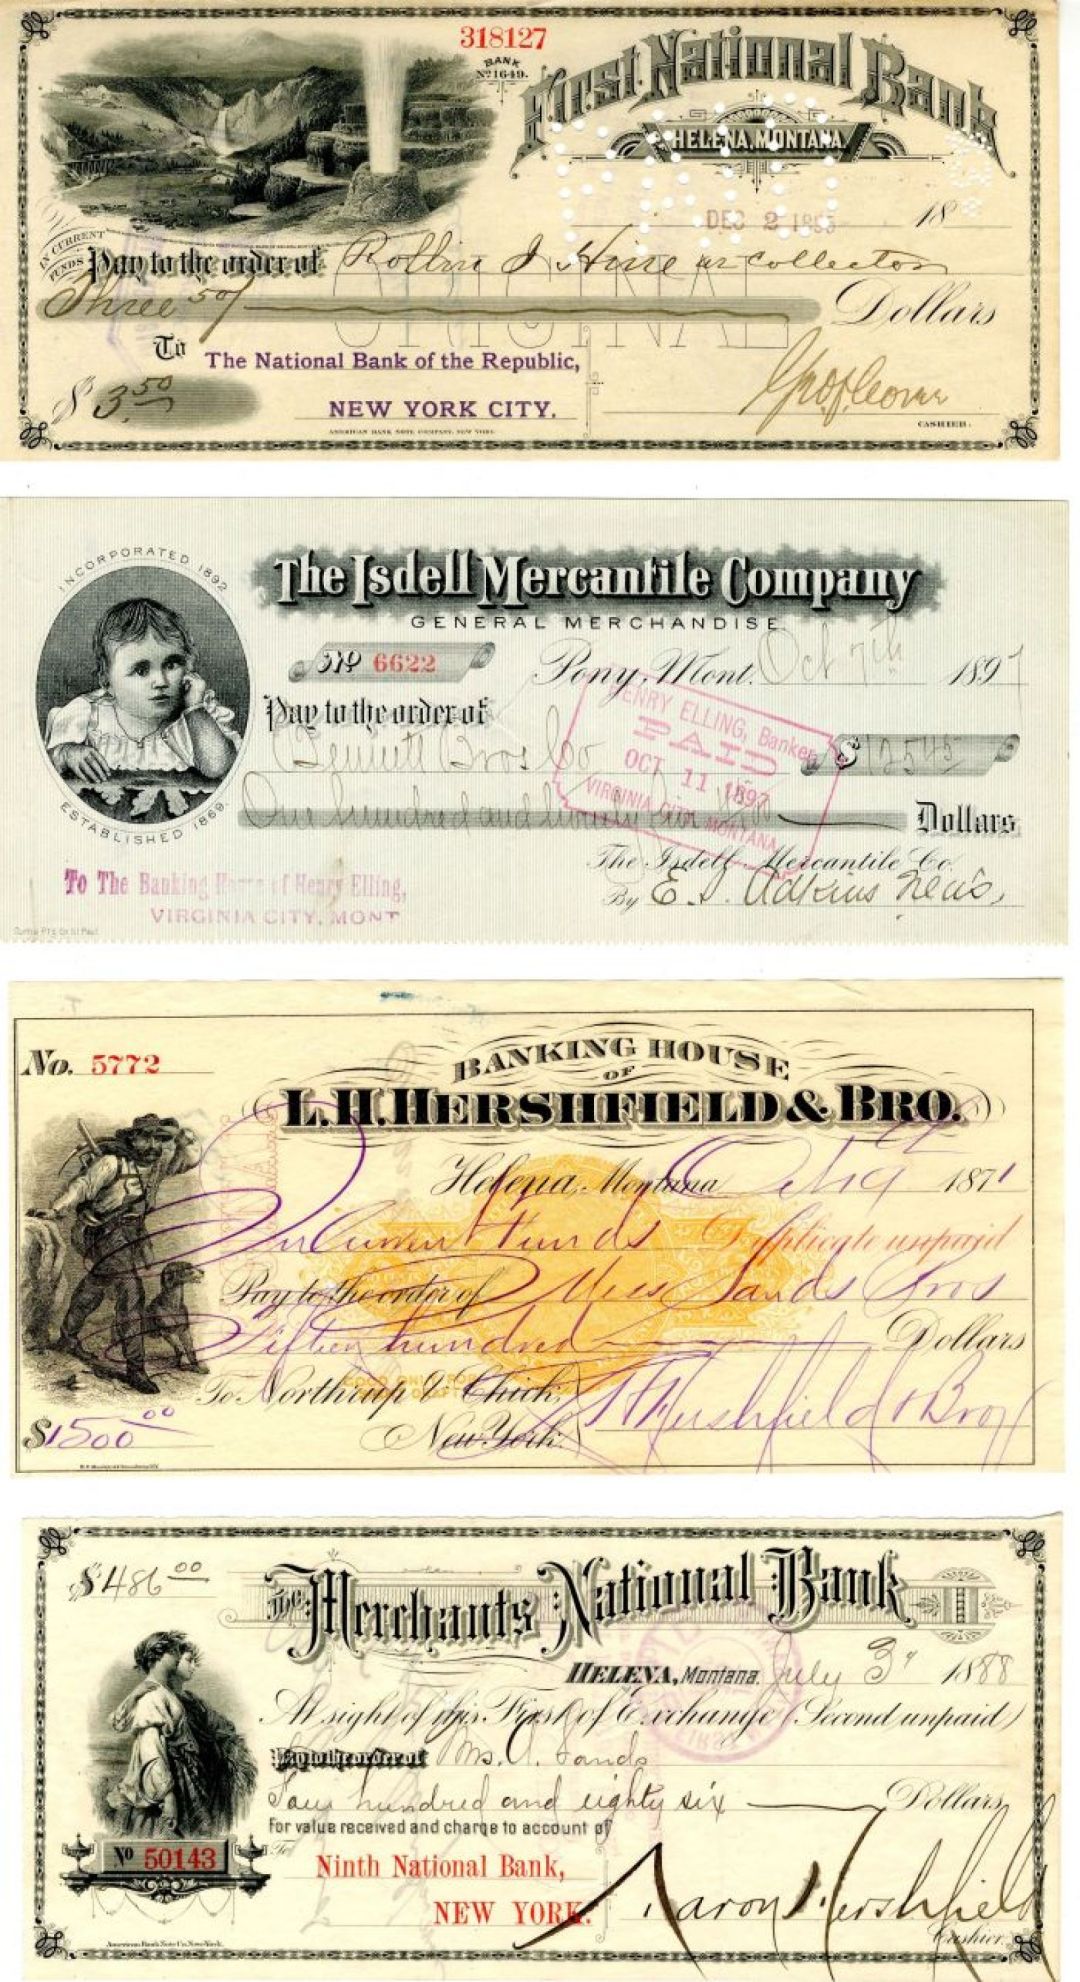 318127
BANK
No 1649.
First National Bank
HELENA, MONTANA.
DEC 2 1893 18
IN CURRENT
FUNDS
Pay to the order of Rollin J Hine as collector
Three 50/ Dollars
ORIGINAL
To The National Bank of the Republic,
$ 3.50
NEW YORK CITY.
CASHIER.
AMERICAN BANK NOTE COMPANY, NEW YORK.
INCORPORATED 1892
The Isdell Mercantile Company
GENERAL MERCHANDISE
No 6622
Pony, Mont. Oct 7th 1897
Pay to the order of
Bennett Bros Co $125 45
HENRY ELLING, Banker
PAID
OCT 11 1897
VIRGINIA CITY, MONTANA
One hundred and twenty five Dollars
ESTABLISHED 1869.
The Isdell Mercantile Co.
To The Banking House of Henry Elling,
VIRGINIA CITY, MONT
By E. J. Adkins
No. 5772
BANKING HOUSE
OF
L.H. HERSHFIELD & BRO.
Helena, Montana 1871
In Current Funds Duplicate unpaid
Pay to the order of Mess Sands Bros
Fifteen hundred Dollars
To Northrup & Chick,
New York.
$1500 00
L H Hershfield & Bro
$486 00
The Merchants National Bank
HELENA, Montana. July 3" 1888
At sight of this First of Exchange (Second unpaid)
Pay to the order of Mrs. A. Sands
Four hundred and eighty six Dollars
For value received and charge to account of
To
No 50143
Ninth National Bank,
NEW YORK.
Aaron Hershfield
Cashier.
American Bank Note Co. New York.